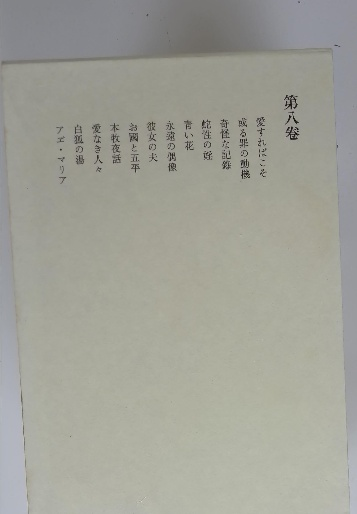 第八卷
愛すればこそ
或る罪の動機
奇怪な記錄
蛇性の婬
青い花
永遠の偶像
彼女の夫
お國と五平
本牧夜話
愛なき人々
白狐の湯
アヹ・マリア